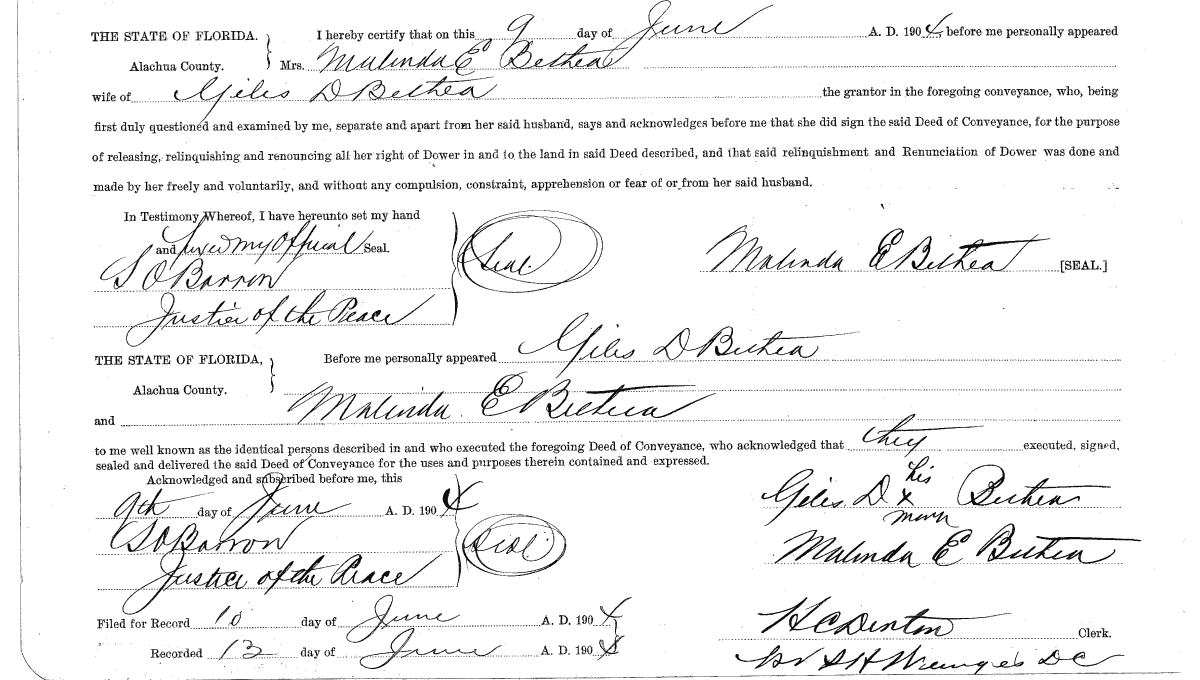 THE STATE OF FLORIDA. } I hereby certify that on this 9 day of June A. D. 1904, before me personally appeared
Alachua County. Mrs. Malinda E Bethea
wife of Giles D Bethea the grantor in the foregoing conveyance, who, being
first duly questioned and examined by me, separate and apart from her said husband, says and acknowledges before me that she did sign the said Deed of Conveyance, for the purpose
of releasing, relinquishing and renouncing all her right of Dower in and to the land in said Deed described, and that said relinquishment and Renunciation of Dower was done and
made by her freely and voluntarily, and without any compulsion, constraint, apprehension or fear of or from her said husband.
In Testimony Whereof, I have hereunto set my hand
and fixed my Official Seal. Seal. Malinda E Bethea [SEAL.]
S O Barron
Justice of the Peace
THE STATE OF FLORIDA, } Before me personally appeared Giles D Bethea
Alachua County.
and Malinda E Bethea
to me well known as the identical persons described in and who executed the foregoing Deed of Conveyance, who acknowledged that they executed, signed,
sealed and delivered the said Deed of Conveyance for the uses and purposes therein contained and expressed.
Acknowledged and subscribed before me, this
9th day of June A. D. 1904 Giles D his x mark Bethea
S O Barron Seal. Malinda E Bethea
Justice of the Peace
Filed for Record 10 day of June A. D. 1904 H C Denton Clerk.
" Recorded 13 day of June A. D. 1904 S H D C